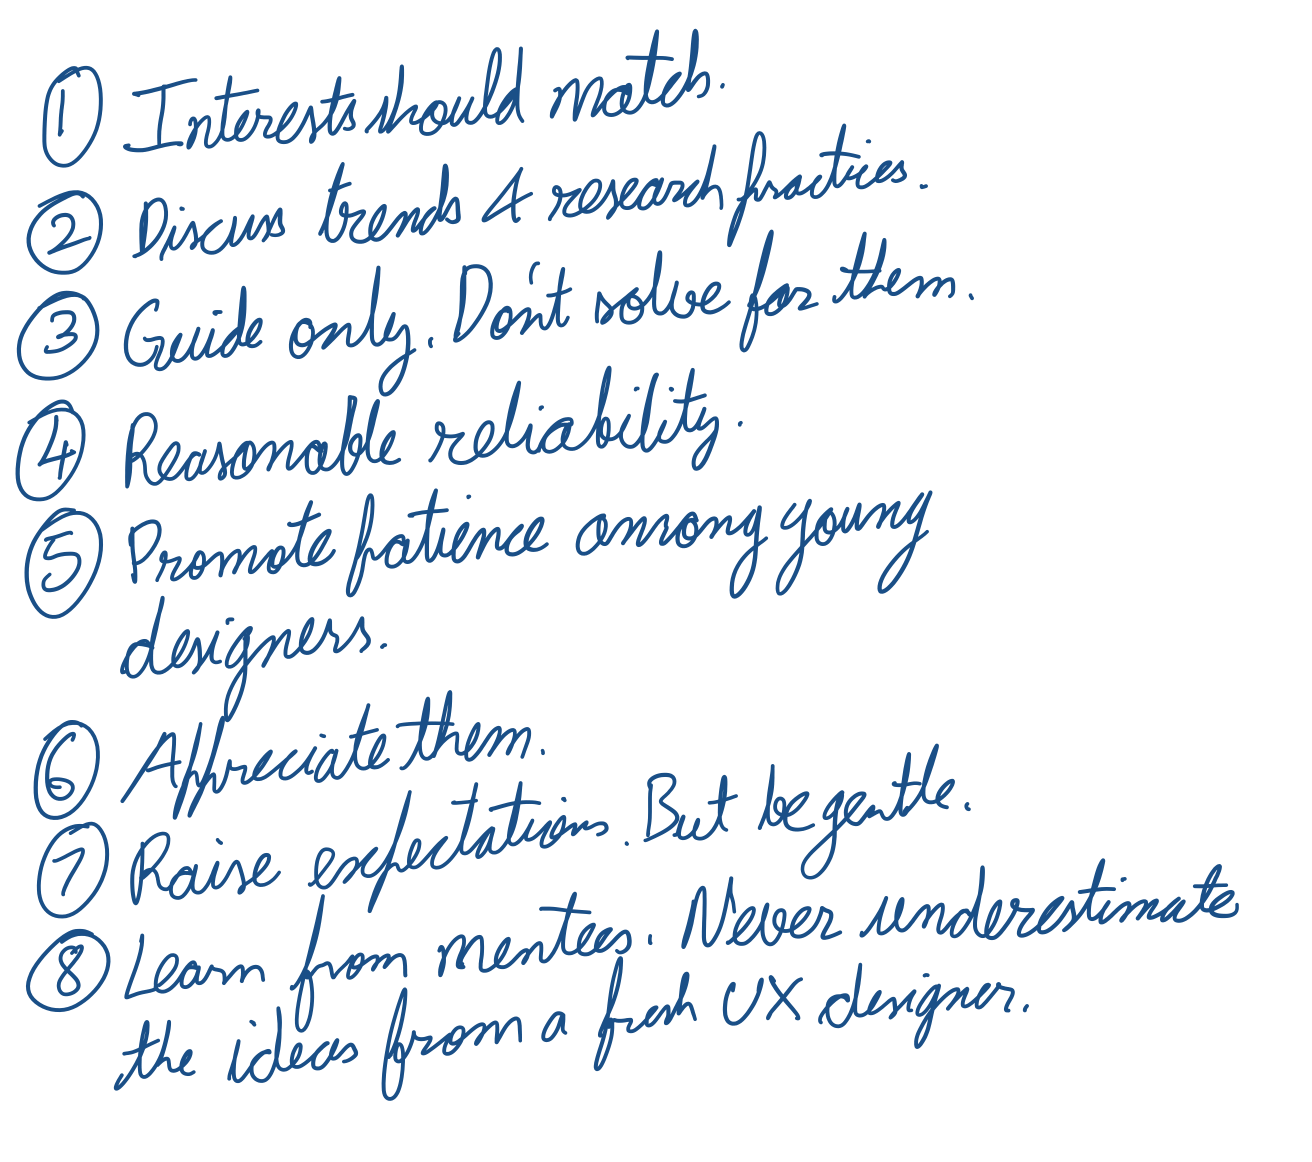 ① Interests should match.
② Discuss trends & research practices.
③ Guide only. Don't solve for them.
④ Reasonable reliability.
⑤ Promote patience among young
designers.
⑥ Appreciate them.
⑦ Raise expectations. But be gentle.
⑧ Learn from mentees. Never underestimate
the ideas from a fresh UX designer.